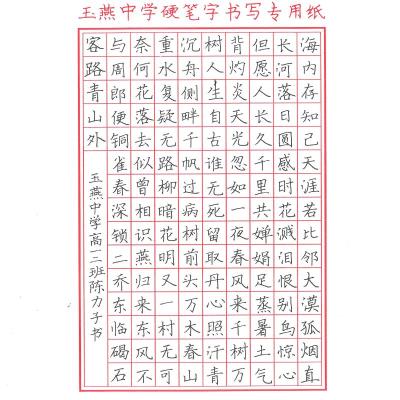 玉燕中学硬笔字书写专用纸
海内存知己天涯若比邻大漠孤烟直
长河落日圆感时花溅泪恨别鸟惊心
但愿人长久千里共婵娟足蒸暑土气
背灼炎天光忽如一夜春风来千树万
树人生自古谁无死留取丹心照汗青
沉舟侧畔千帆过病树前头万木春山
重水复疑无路柳暗花明又一村无可
奈何花落去似曾相识燕归来东风不
与周郎便铜雀春深锁二乔东临碣石
客路青山外
玉燕中学高一二班陈力子书